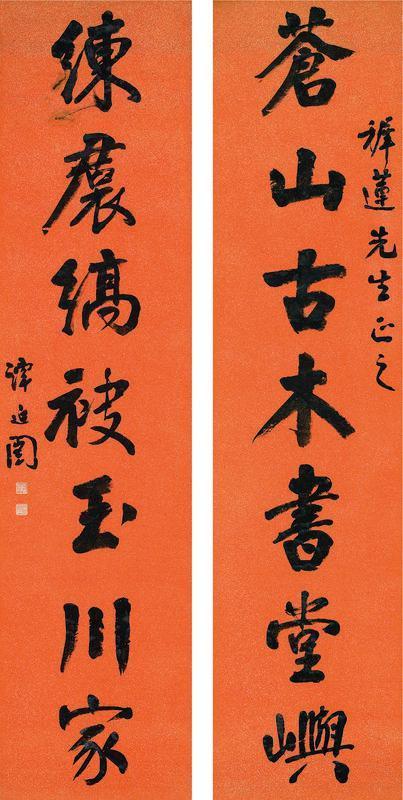 蒼山古木書堂嶼
稚蓮先生正之
練裠縞袂玉川家
譚延闓